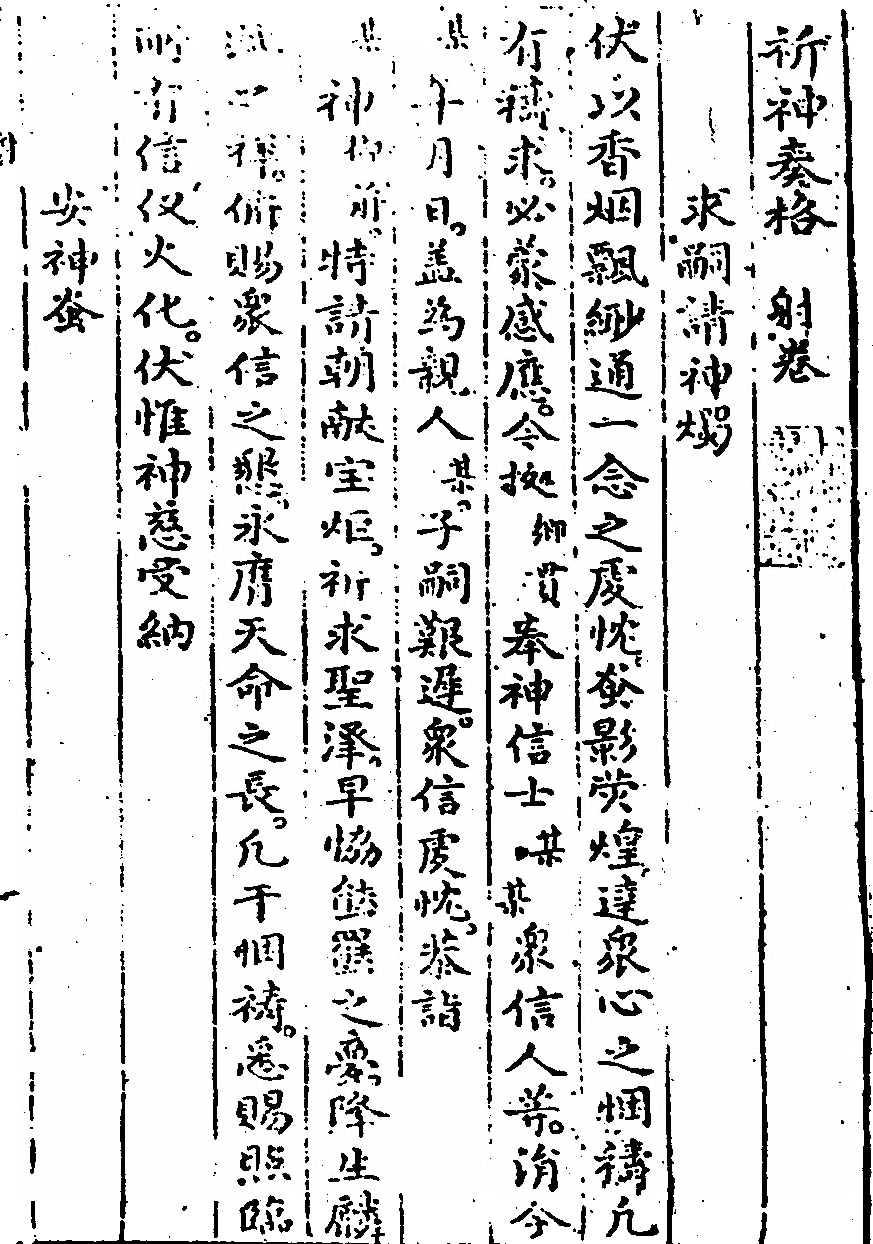 祈神奏格 射卷
求嗣請神燭
伏以香烟飄緲通一念之虔忱蚤影熒煌達衆心之悃禱凡
有禱求必蒙感應今拠鄉貫奉神信士某某衆信人等涓今
某年月日蓋為親人某子嗣艱遲衆信虔忱恭詣
某神御前特請朝献宝炬祈求聖澤早恊熊羆之夢降生麟
之祥俯賜衆信之懇永膺天命之長凢干悃祷悉賜照臨
所有信仪火化伏惟神慈受納
安神蚤